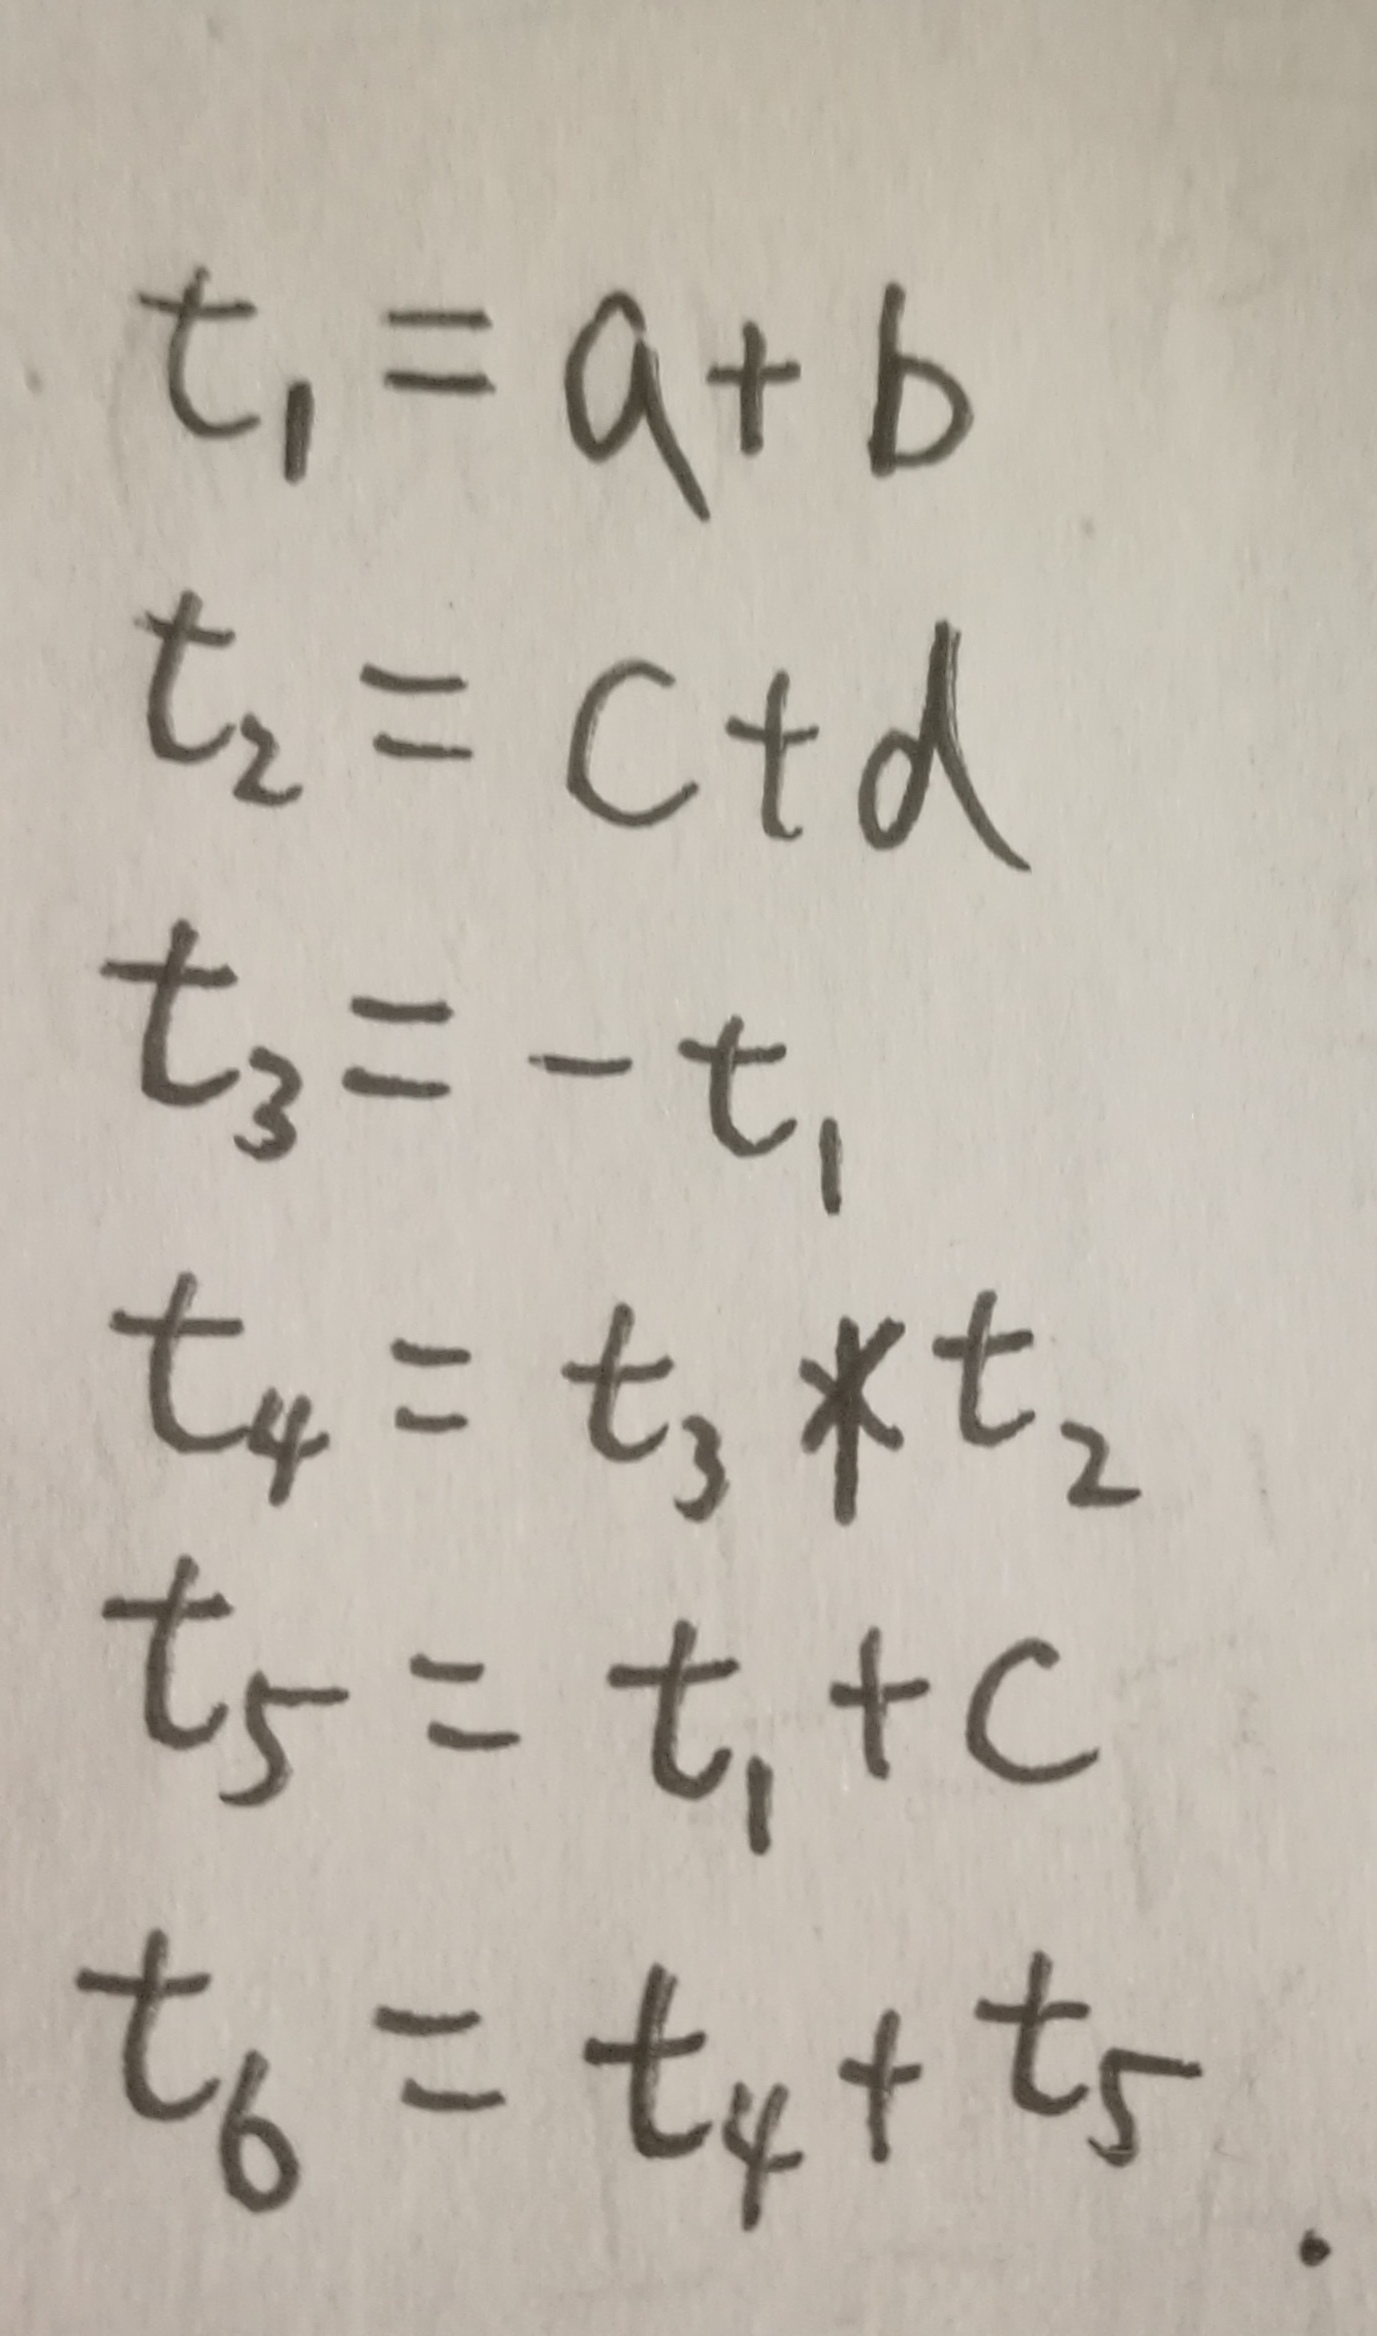 t₁ = a + b
t₂ = c + d
t₃ = - t₁
t₄ = t₃ * t₂
t₅ = t₁ + c
t₆ = t₄ + t₅.